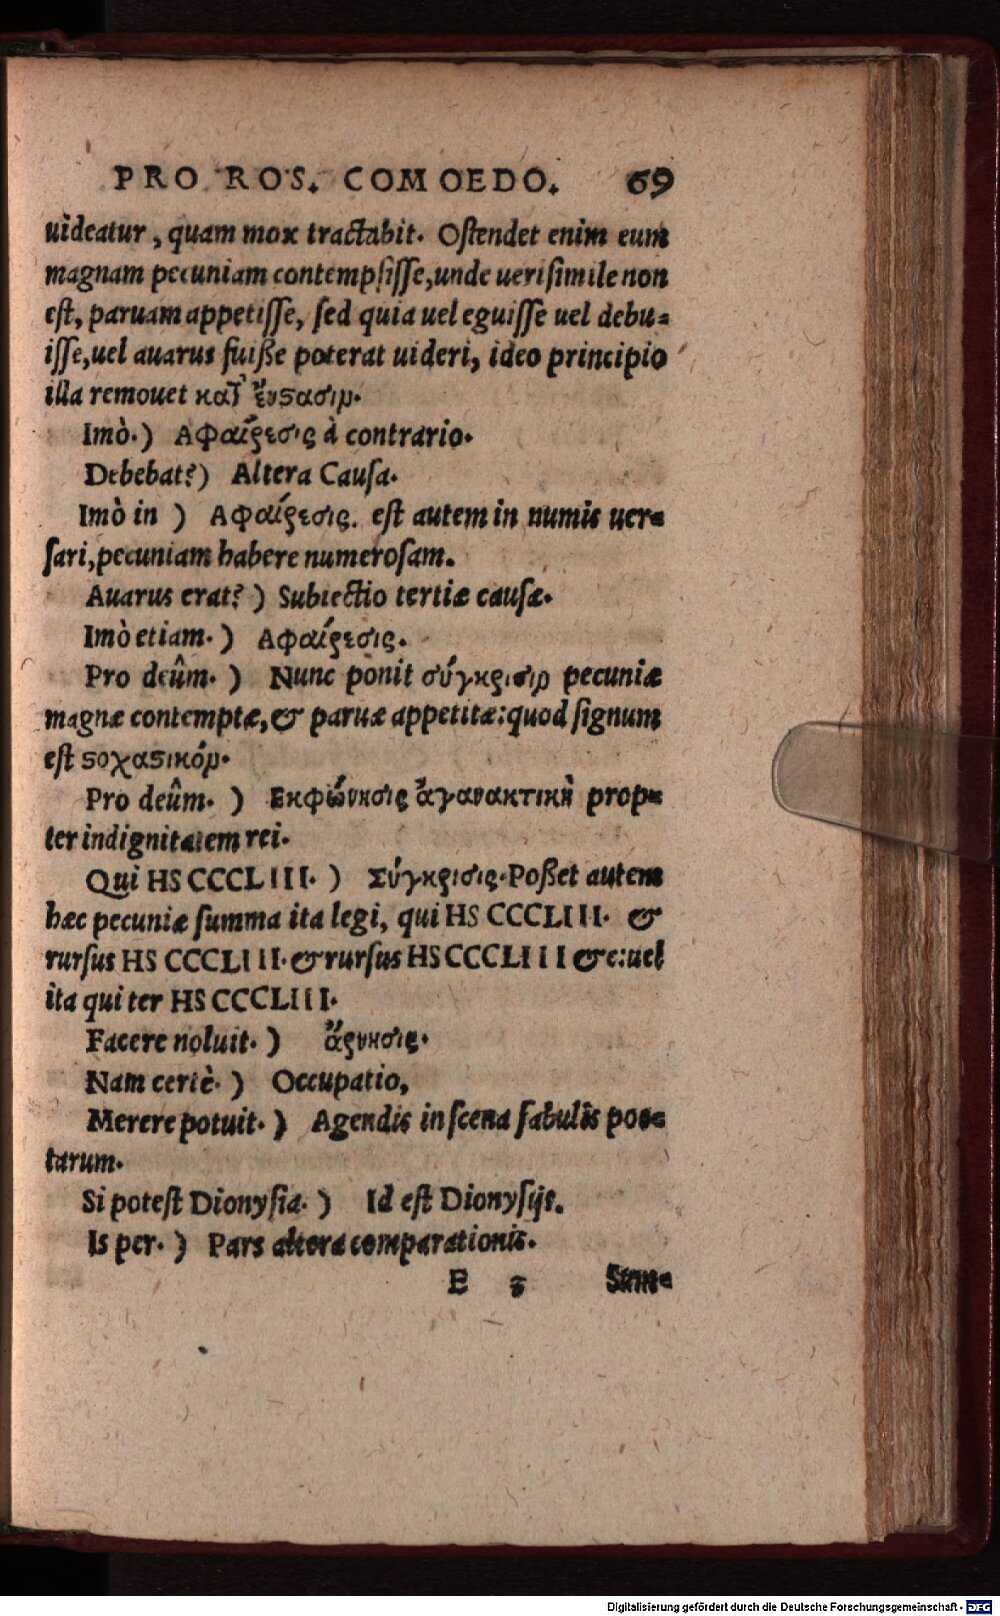 PRO ROS. COMOEDO. 69
uideatur, quam mox tractabit. Ostendet enim eum
magnam pecuniam contempsisse, unde uerisimile non
est, paruam appetisse, sed quia uel eguisse uel debu=
isse, uel auarus fuisse poterat uideri, ideo principio
illa remouet κατ᾽ ἔνστασιν.
Imò.) Αφαίρεσις à contrario.
Debebat?) Altera Causa.
Imò in ) Αφαίρεσις. est autem in numis uer=
sari, pecuniam habere numerosam.
Auarus erat? ) Subiectio tertiæ causæ.
Imò etiam. ) Αφαίρεσις.
Pro deûm. ) Nunc ponit σύγκρισιν pecuniæ
magnæ contemptæ, & paruæ appetitæ: quod signum
est στοχαστικόν.
Pro deûm. ) Εκφώνησις ἀγανακτικὴ prop=
ter indignitatem rei.
Qui HS CCCLIII. ) Σύγκρισις. Posset autem
hæc pecuniæ summa ita legi, qui HS CCCLIII. &
rursus HS CCCLIII. & rursus HS CCCLIII &c: uel
ita qui ter HS CCCLIII.
Facere noluit. ) ἄρνησις.
Nam certè. ) Occupatio,
Merere potuit. ) Agendis in scena fabulis poe=
tarum.
Si potest Dionysia. ) Id est Dionysijs.
Is per. ) Pars altera comparationis.
E 3 Sum=
Digitalisierung gefördert durch die Deutsche Forschungsgemeinschaft - DFG